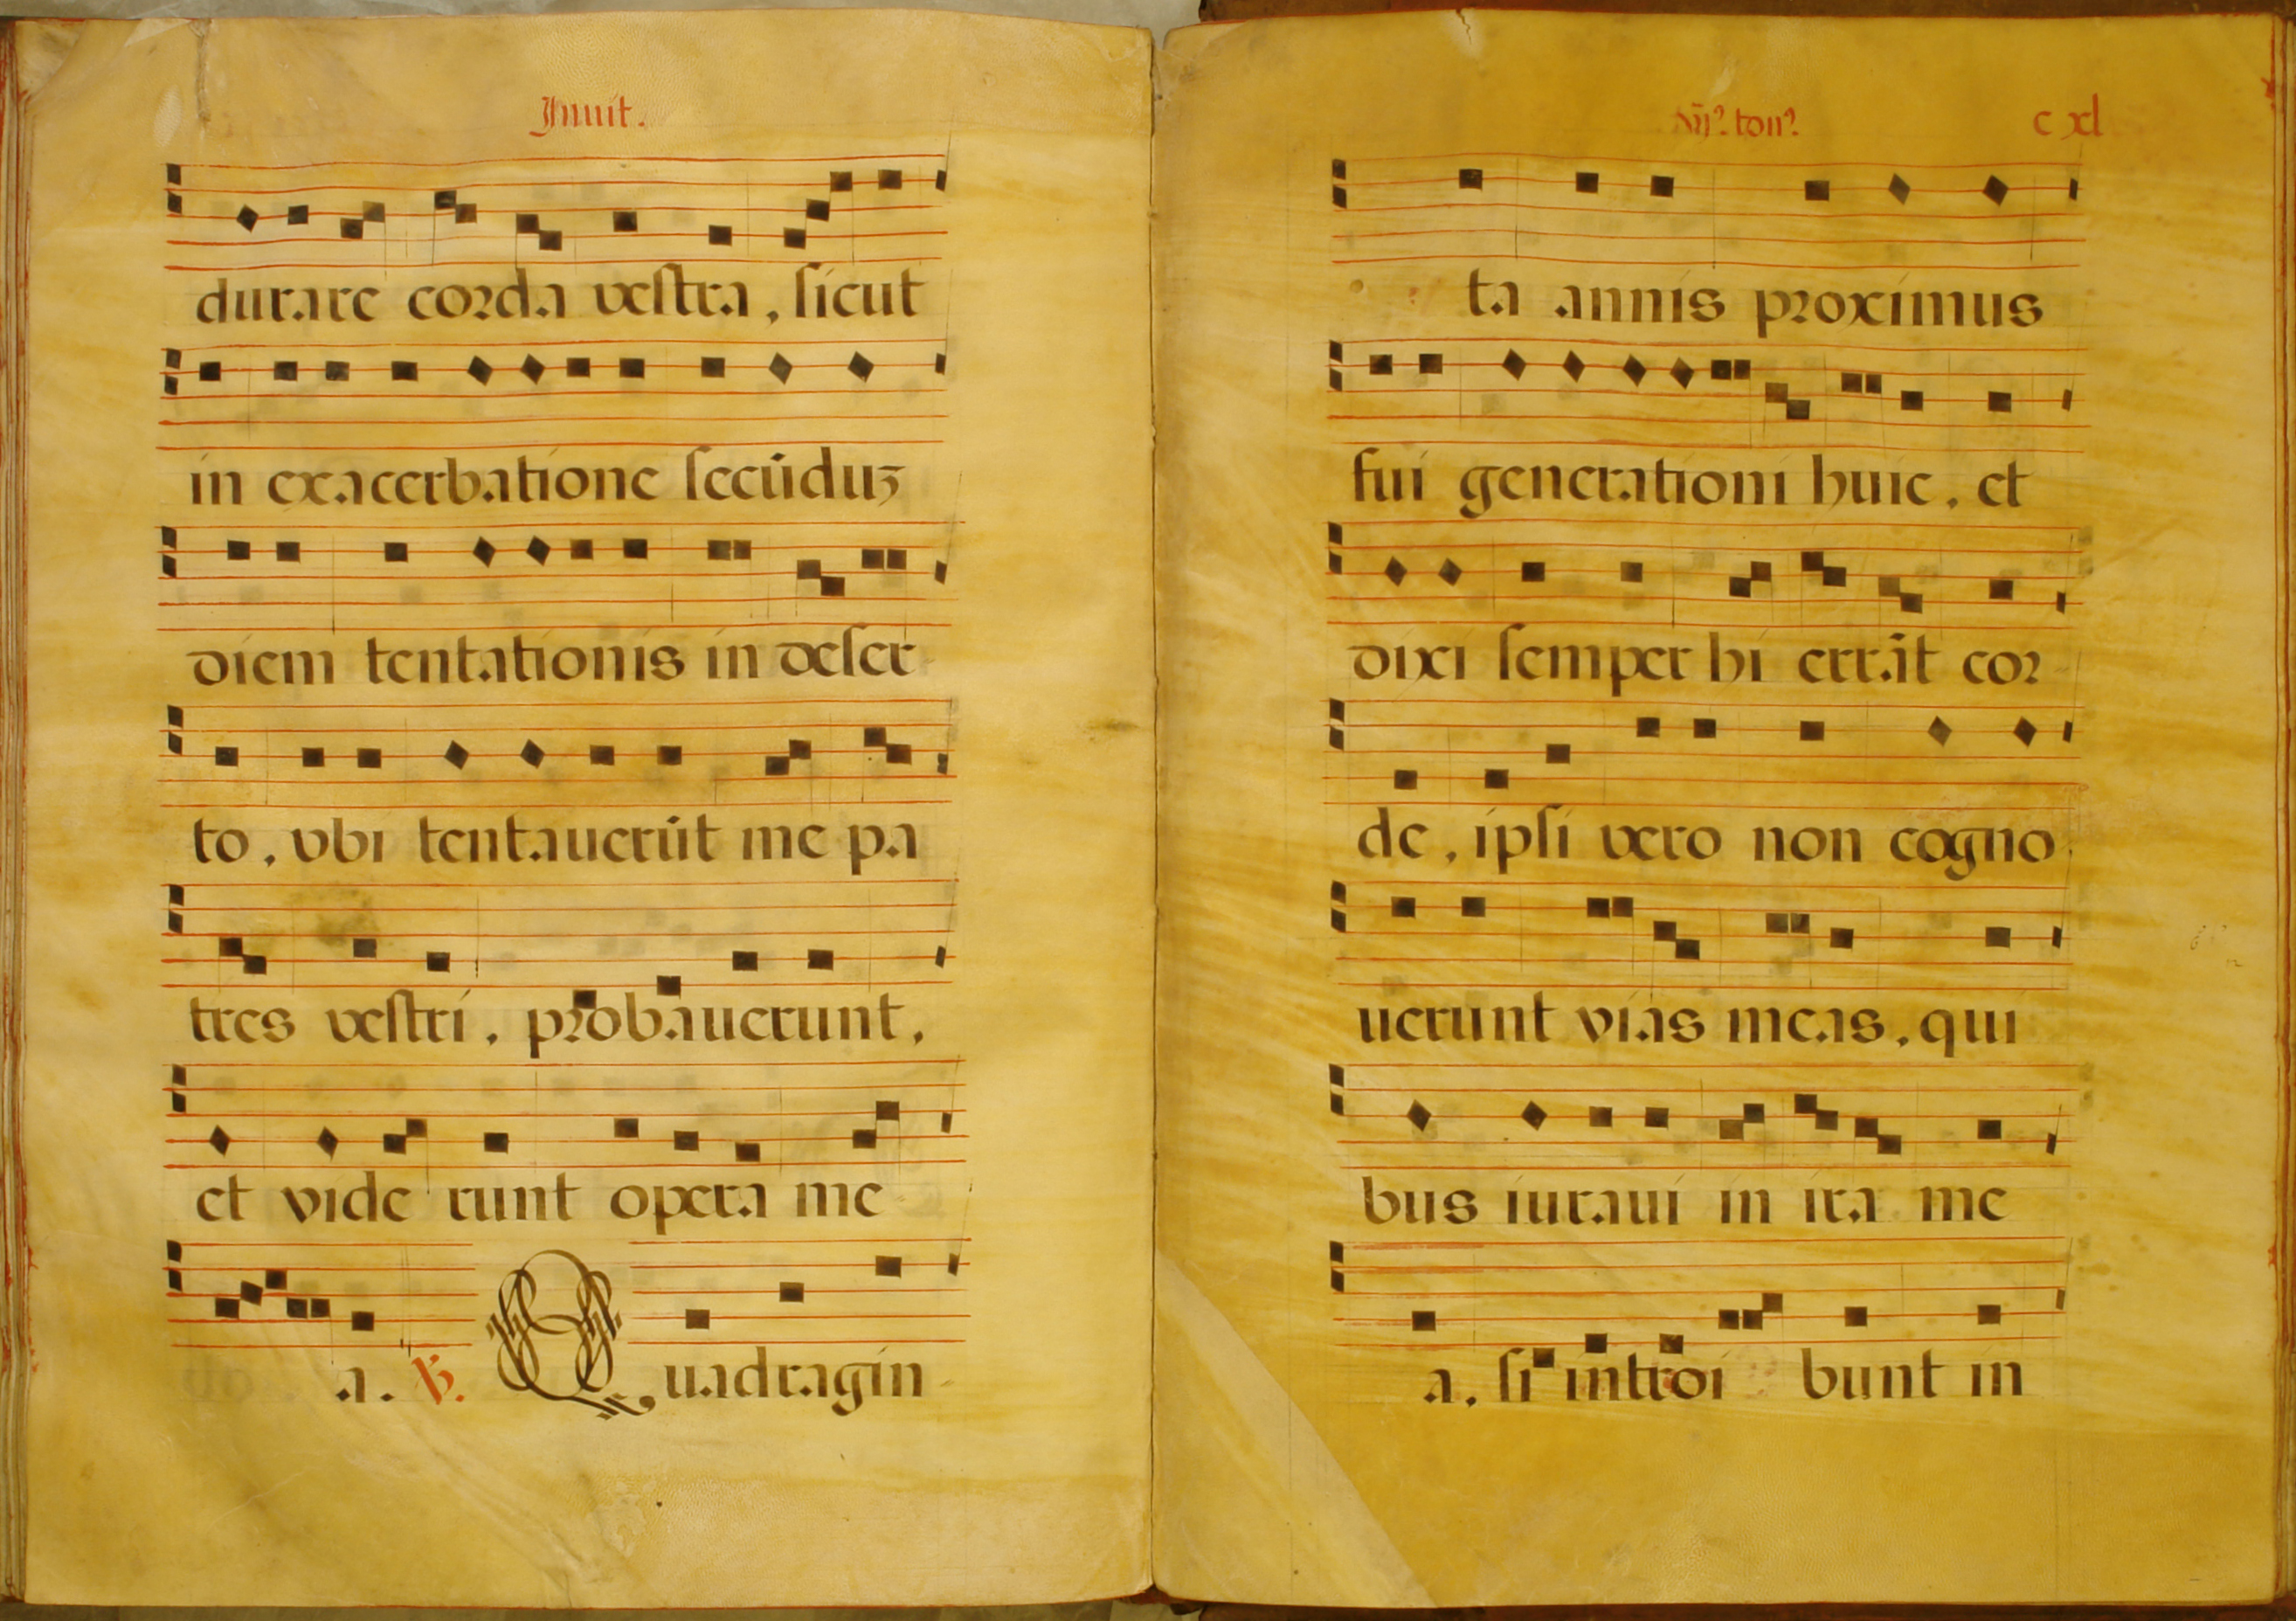 Inuit.
durare corda vestra, sicut
in exacerbatione secūduz
diem tentationis in deser
to, vbi tentauerūt me pa
tres vestri, probauerunt,
et vide runt opera me
a. ℣. Quadragin
vij? ton?
cxl
ta annis proximus
fui generationi huic, et
dixi semper hi errāt cor
de, ipsi vero non cogno
uerunt vias meas, qui
bus iuraui in ira me
a, si introi bunt in